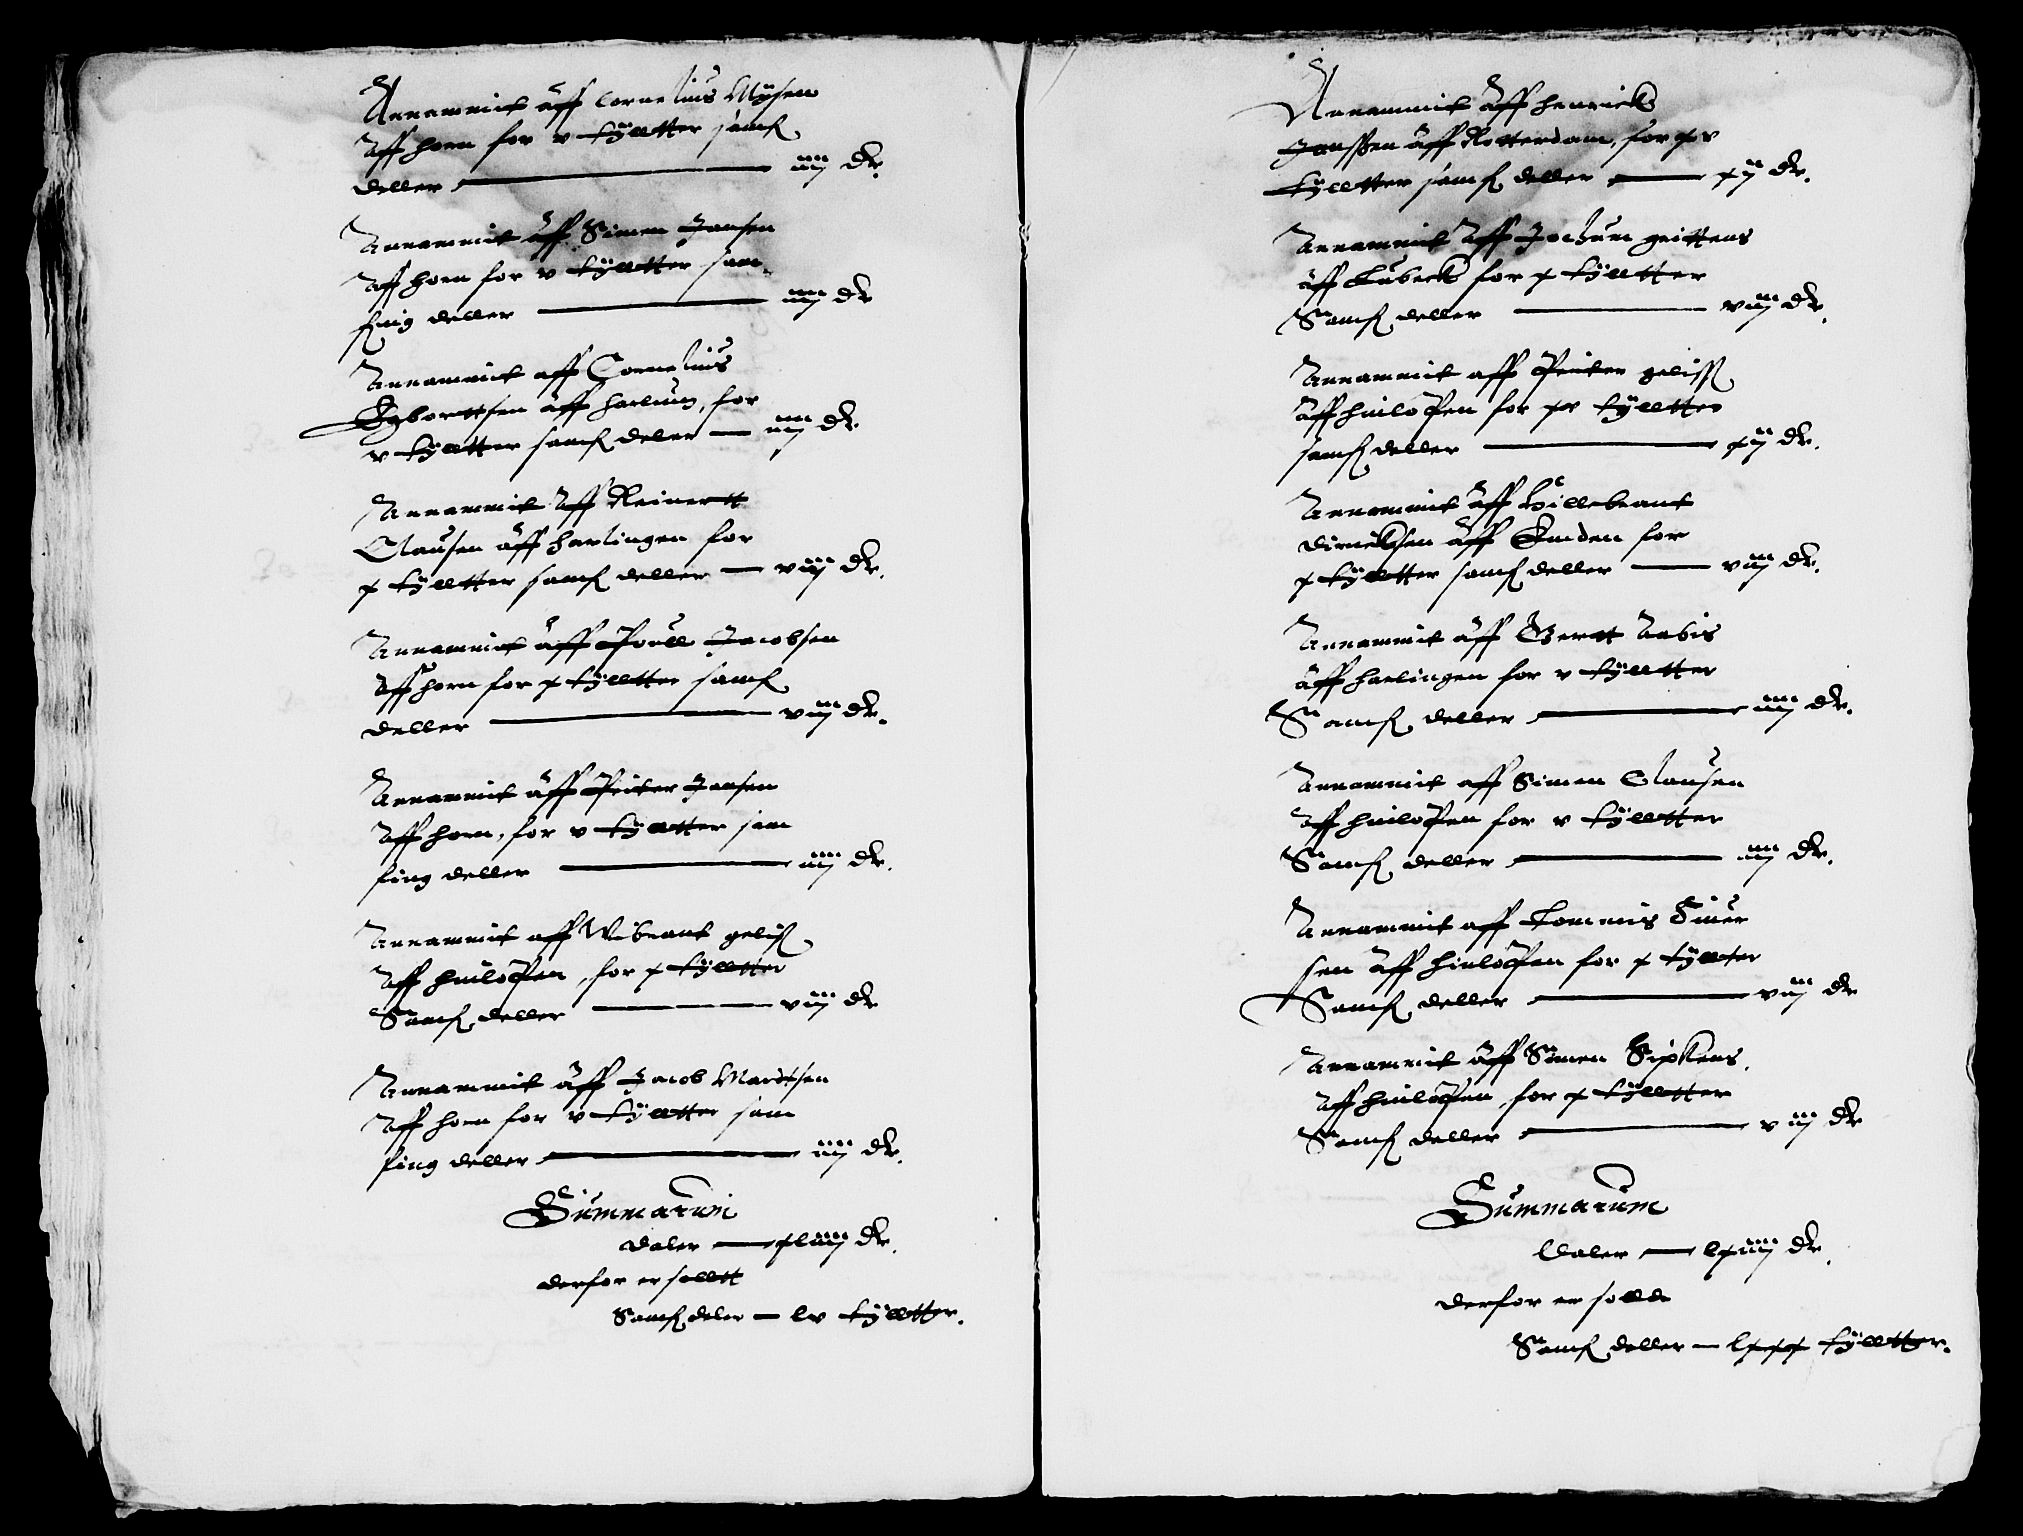 Annammit aff Cornelius Mÿsen
Aff horn for v tÿlltter samf
deller — iiij dr.
Annammit aff Simen Jansen
Aff horn for v tÿlltter sam-
fnig deller — iiij dr
Annammit aff Cornelius
Egbortsen aff harlum, for
v tÿlltter samf deler — iiij dr
Annammit Aff Reinertt
Clausen aff harlingen for
x tÿlltter samf deller — viij dr.
Annammit aff Pouell Jacobsen
Aff horn for x tÿlltter samf
deller — viij dr.
Annammit aff Peiter Jansen
Aff horn, for v tÿlltter sam
fing deller — iiij dr.
Annammit aff Wibrant gelis
Aff hinlopen, for x tÿlltter
Samf deller — viij dr
Annammit aff Jacob Martsen
Aff horn for v tÿlltter sam
fing deller — iiij dr.
Summarum
daler — xliiij dr.
derfor er solltt
Samf deler — lv tÿlltter.
Annammit Aff henrick
Janssen aff Rotterdam, for xv
tÿlltter samf deller — xij dr.
Annammit Aff Jochum
aff Lubeck for x tÿlltter
Samf deller — viij dr.
Annammit aff Peiter geliss
Aff hinlopen for xv tÿlltter
samf deller — xij dr.
Annammit Aff Hillebrant
dircksen aff Emden for
x tÿlltter samf deller — viij dr.
Annammit aff Gertt Aabis
aff harlingen for v tÿlltter
Samf deller — iiij dr.
Annammit aff Simen Clausen
Aff hinlopen for v tÿlltter
Samf deller — iiij dr.
Annammit aff Tommis Siuer
sen aff hinlopen for x tÿlltter
Samf deller — viij dr
Annammit aff Simen Sipkens
Aff hinlopen, for x tÿlltter
Samf deller — viij dr
Summarum
Daler — lxiiij dr.
derfor er solld
Samf deller — lxxx tÿlltter.